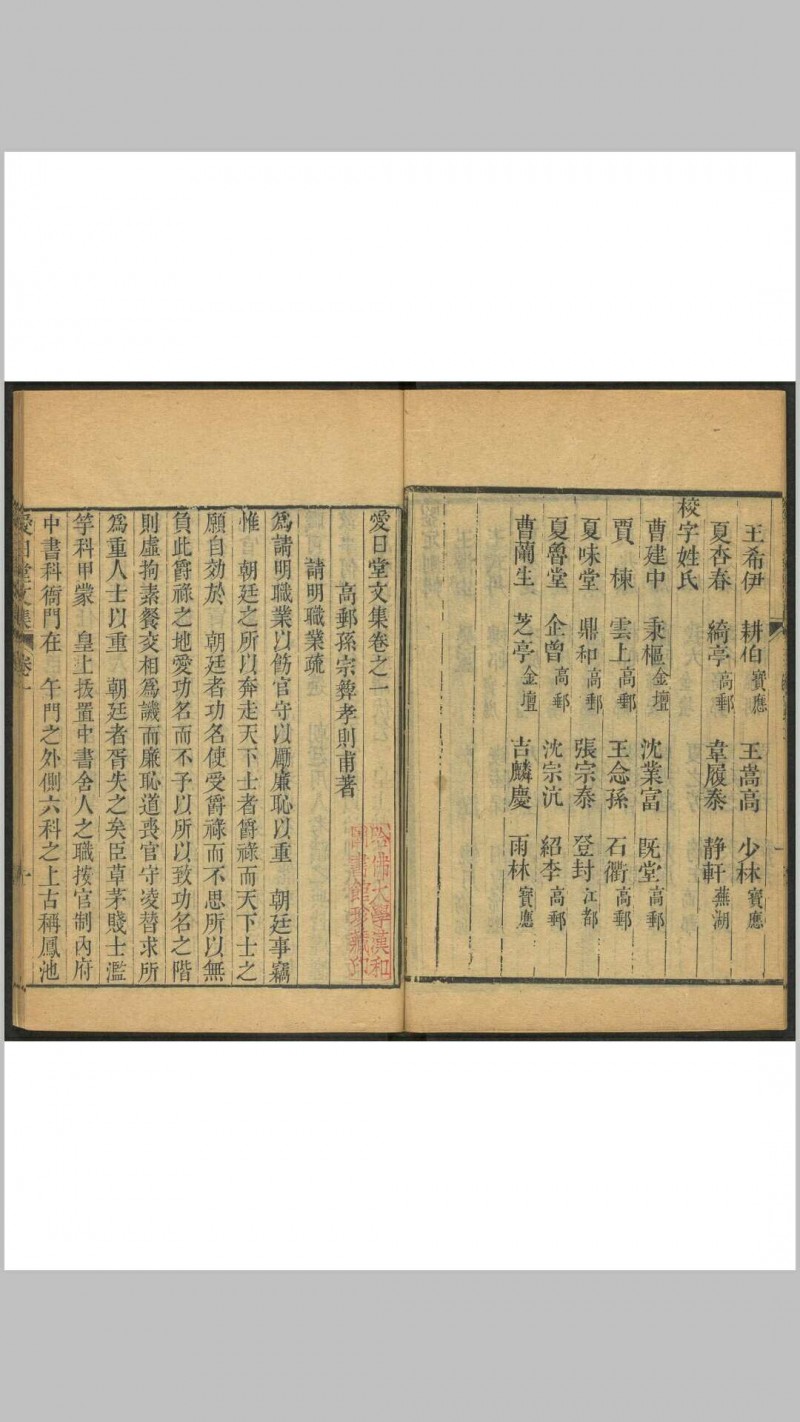 王希伊 耕伯寶應 王嵩高 少林寶應
夏杏春 綺亭高郵 韋履泰 静軒蕪湖
校字姓氏
曹建中 秉樞金壇 沈業富 既堂高郵
賈棟 雲上高郵 王念孫 石衢高郵
夏味堂 鼎和高郵 張宗泰 登封江都
夏魯堂 企曾高郵 沈宗沆 紹李高郵
曹蘭生 芝亭金壇 吉麟慶 雨林寶應
愛日堂文集卷之一
高郵孫宗彝孝則甫著
請明職業疏
爲請明職業以飭官守以勵廉恥以重 朝廷事竊
惟 朝廷之所以奔走天下士者爵祿而天下士之
願自効於 朝廷者功名使受爵祿而不思所以無
負此爵祿之地愛功名而不予以所以致功名之階
則虛拘素餐交相爲譏而廉恥道喪官守凌替求所
爲重人士以重 朝廷者胥失之矣臣草茅賤士濫
竽科甲蒙 皇上拔置中書舍人之職按官制內府
中書科衙門在 午門之外側六科之上古稱鳳池
愛日堂文集 卷一 一
哈佛大學漢和
圖書館珍藏印